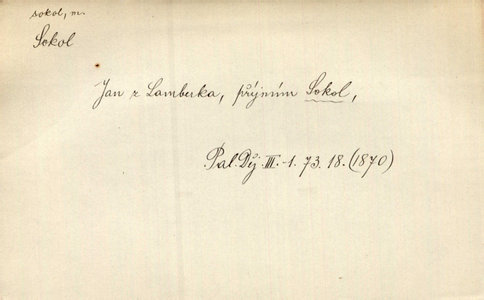 sokol, m.
Sokol
Jan z Lamberka, příjmím Sokol,
Pal. Děj. III. 1. 73. 18. (1870)